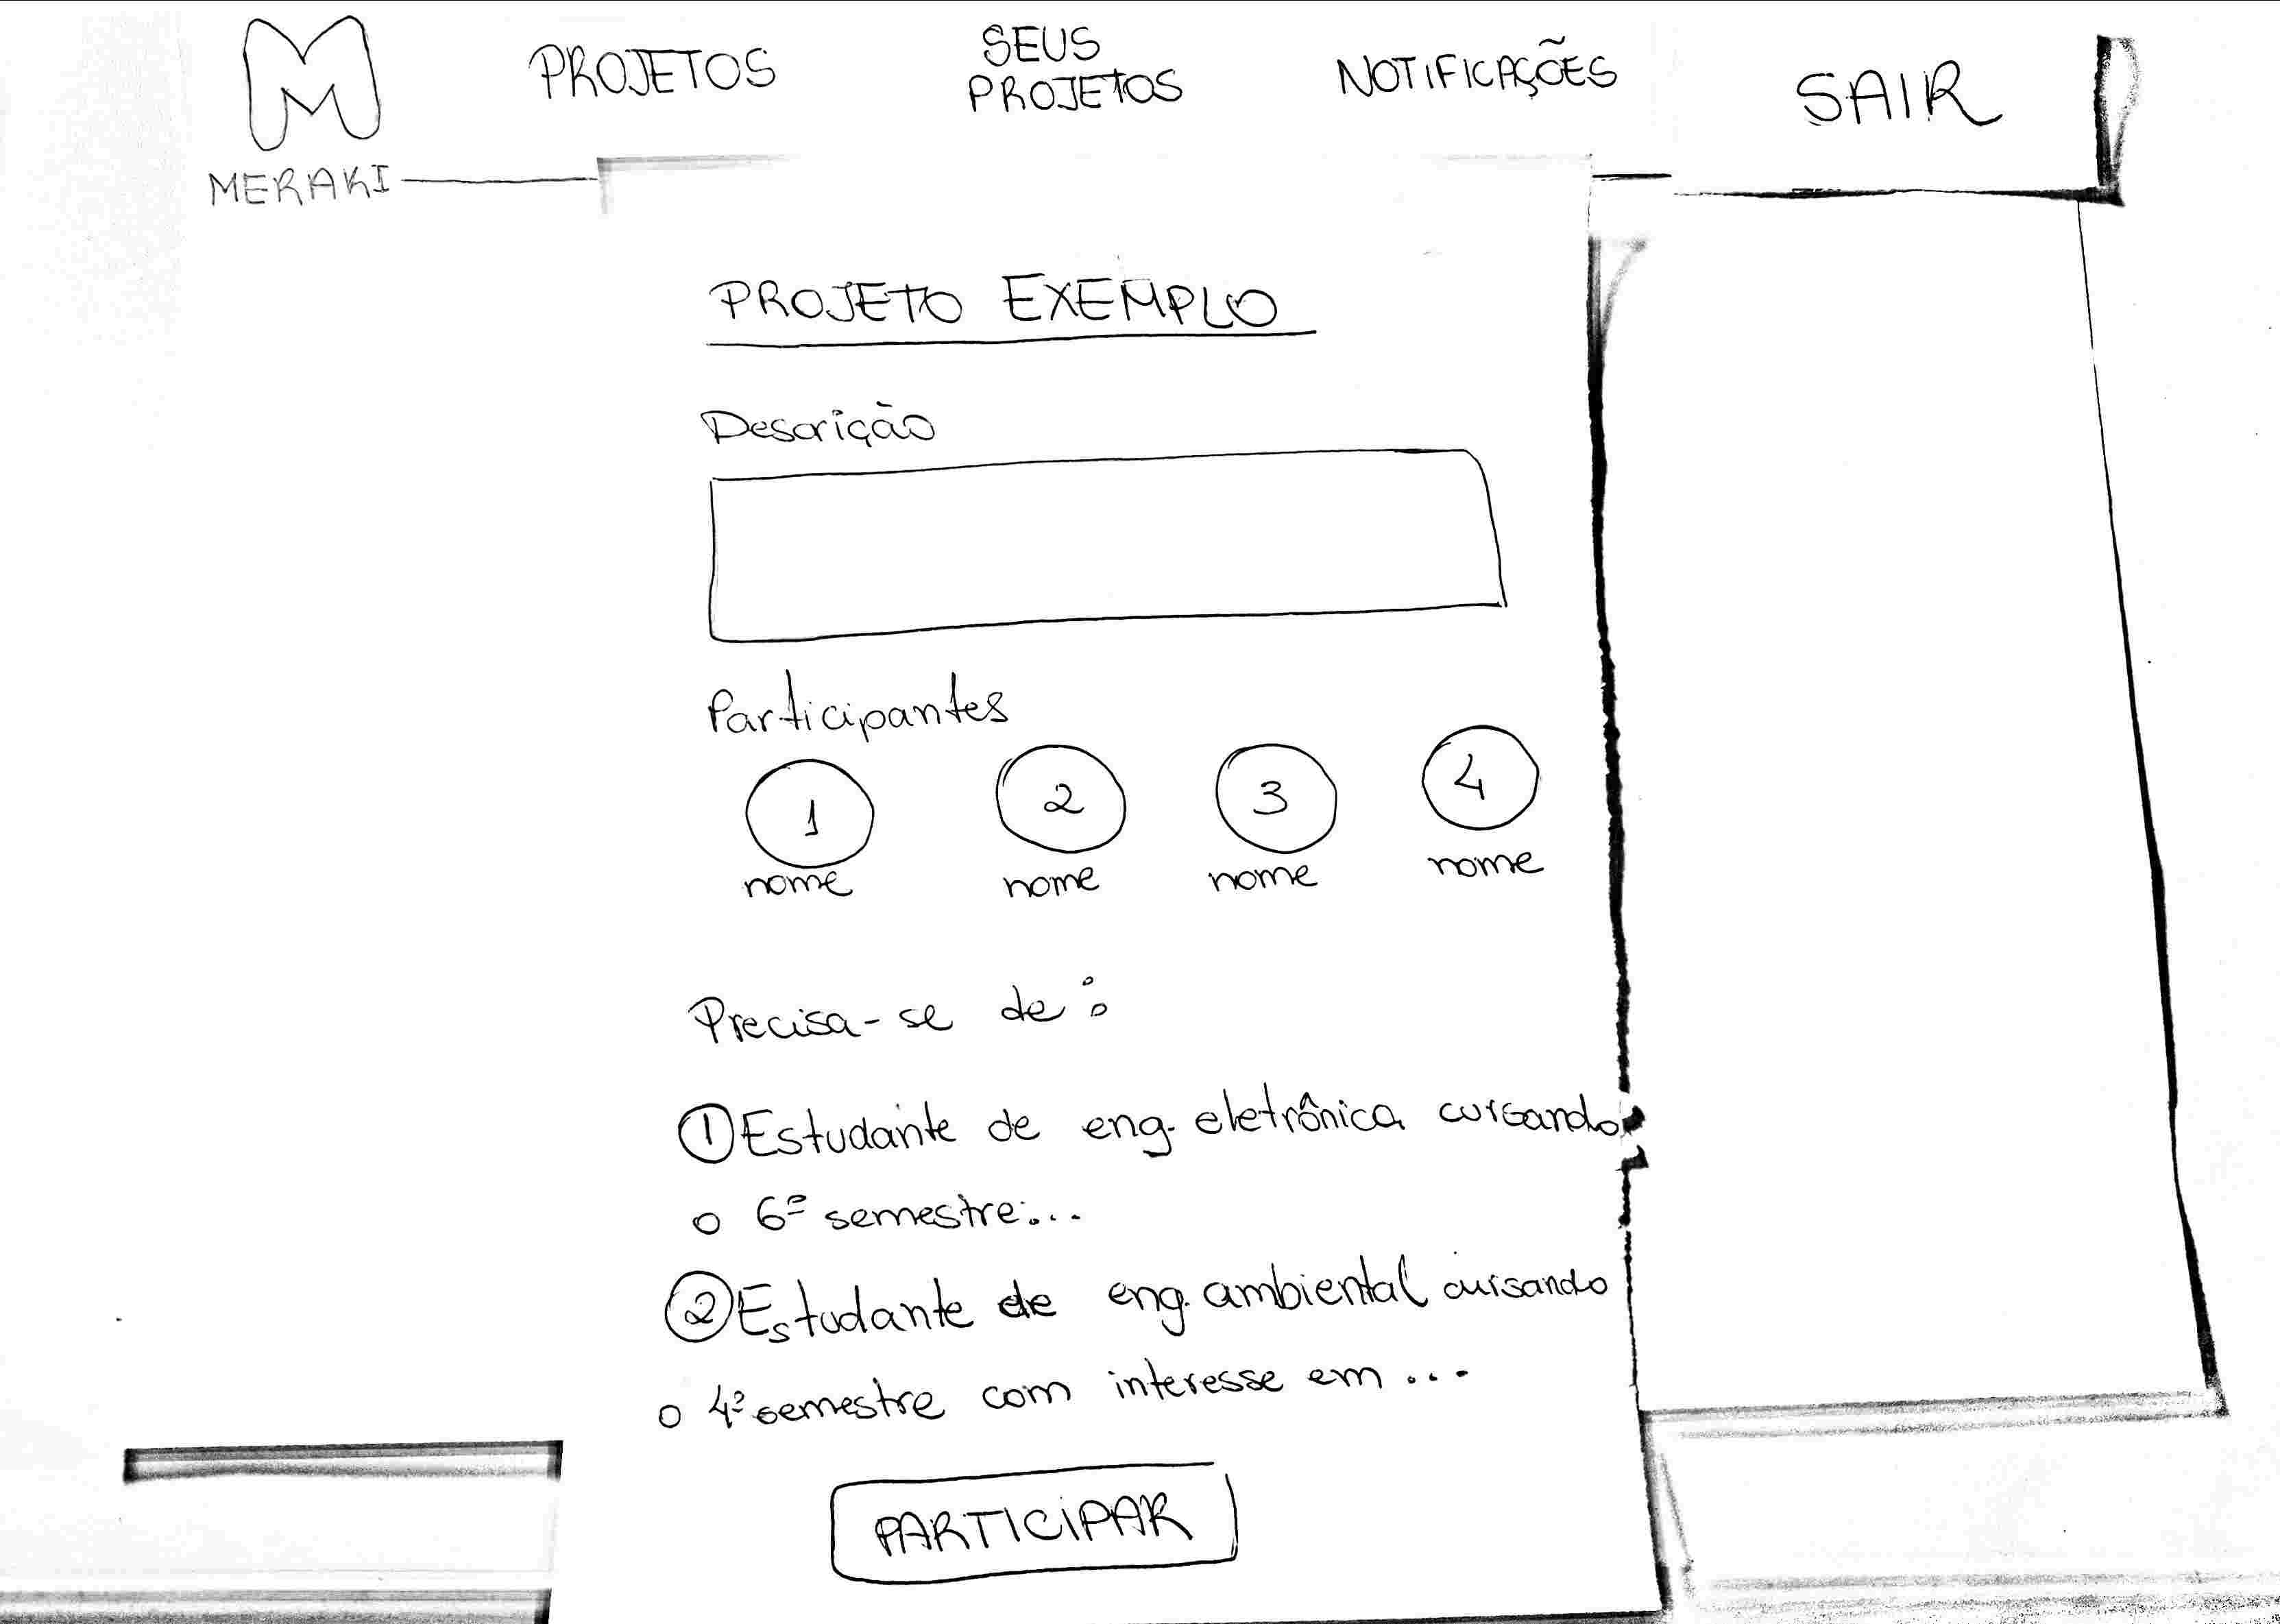 M
MERAKI
PROJETOS
SEUS
PROJETOS
NOTIFICAÇÕES
SAIR
PROJETO EXEMPLO
Descrição
Participantes
1
2
3
4
nome
nome
nome
nome
Precisa-se de:
1 Estudante de eng. eletrônica cursando
6º semestre...
2 Estudante de eng. ambiental cursando
4º semestre com interesse em ...
PARTICIPAR